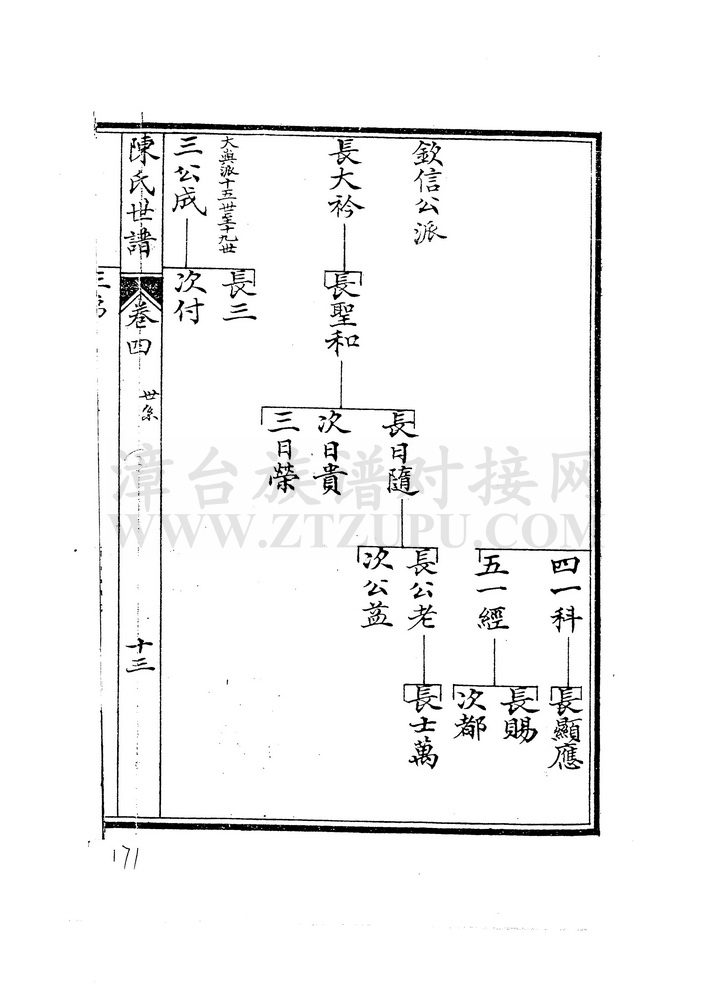 欽信公派
四一科
長顯應
五一經
長賜
次都
長大衿
長聖和
長日隨
次日貴
三日榮
長公老
次公益
長士萬
大興派十五世至十九世
三公成
長三
次付
陳氏世譜
卷四
世系
十三
171
漳台族谱对接网
WWW.ZTZUPU.COM